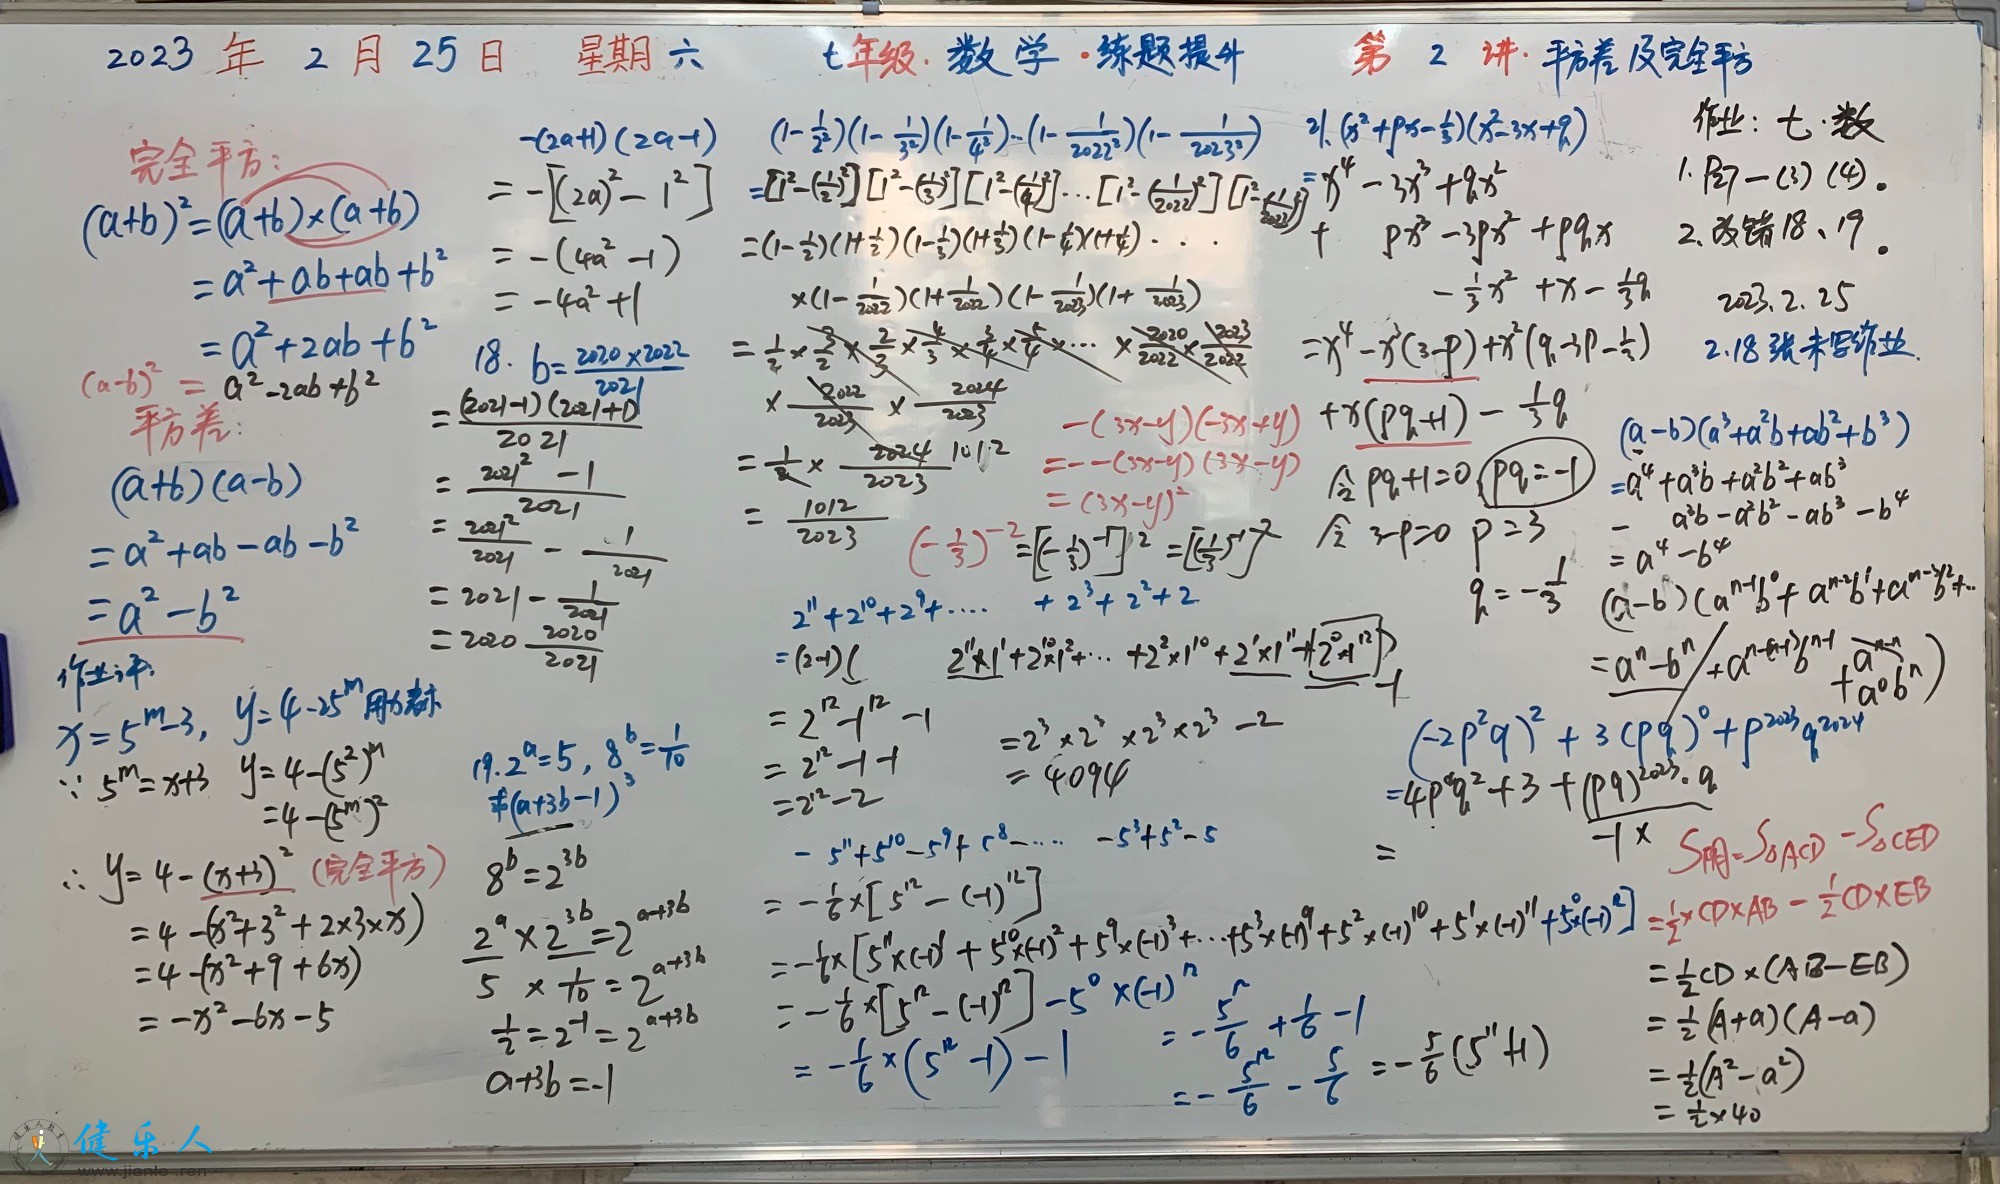 2023 年 2 月 25 日 星期六 七年级·数学·练题提升 第 2 讲·平方差及完全平方
完全平方:
(a+b)²=(a+b)×(a+b)
=a²+ab+ab+b²
=a²+2ab+b²
(a-b)²=a²-2ab+b²
平方差:
(a+b)(a-b)
=a²+ab-ab-b²
=a²-b²
作业评:
x=5^m-3, y=4-25^m 用x表示
∵ 5^m=x+3 y=4-(5²)^m
=4-(5^m)²
∴ y=4-(x+3)² (完全平方)
=4-(x²+3²+2×3×x)
=4-(x²+9+6x)
=-x²-6x-5
-(2a+1)(2a-1)
=-[(2a)²-1²]
=-(4a²-1)
=-4a²+1
18. b=2020×2022/2021
=(2021-1)(2021+1)/2021
=2021²-1/2021
=2021²/2021-1/2021
=2021-1/2021
=2020 2020/2021
19. 2^a=5, 8^b=1/10
求(a+3b-1)³
8^b=2^3b
2^a×2^3b=2^a+3b
5×1/10=2^a+3b
1/2=2^-1=2^a+3b
a+3b=-1
(1-1/2²)(1-1/3²)(1-1/4²)…(1-1/2022²)(1-1/2023²)
=[1²-(1/2)²][1²-(1/3)²][1²-(1/4)²]…[1²-(1/2022)²][1²-(1/2022)²]
=(1-1/2)(1+1/2)(1-1/3)(1+1/3)(1-1/4)(1+1/4)····
×(1-1/2022)(1+1/2022)(1-1/2023)(1+1/2023)
=1/2×3/2×2/3×4/3×3/4×5/4×…×2020/2022×2023/2022
×2022/2023×2024/2023
=1/2×2024/2023 1012
=1012/2023
-(3x-y)(-3x+y)
=--(3x-y)(3x-y)
=(3x-y)²
(-1/3)^-2=[(-1/3)^-1]²=[(1/3)^1]²
2^11+2^10+2^9+…… +2³+2²+2
=(2-1)( 2^11×1^1+2^10×1²+…+2²×1^10+2^1×1^11+2^0×1^12)-1
=2^12-1^12-1
=2^12-1-1
=2^12-2
=2³×2³×2³×2³-2
=4094
-5^11+5^10-5^9+5^8-…… -5³+5²-5
=-1/6×[5^12-(-1)^12]
=-1/6×[5^11×(-1)^1+5^10×(-1)²+5^9×(-1)³+…+5³×(-1)^9+5²×(-1)^10+5^1×(-1)^11+5^0×(-1)^12]
=-1/6×[5^12-(-1)^12]-5^0×(-1)^12
=-1/6×(5^12-1)-1
=-5^12/6+1/6-1
=-5^12/6-5/6=-5/6(5^11+1)
21. (x²+px-1/3)(x²-3x+q)
=x⁴-3x³+qx²
+ px³-3px²+pqx
-1/3x²+x-1/3q
=x⁴-x³(3-p)+x²(q-3p-1/3)
+x(pq+1)-1/3q
令 pq+1=0, pq=-1
令 3-p=0 p=3
q=-1/3
作业: 七·数
1. 阶一(3)(4)。
2. 改错18、19。
2023.2.25
2.18 张未写作业.
(a-b)(a³+a²b+ab²+b³)
=a⁴+a³b+a²b²+ab³
- a³b-a²b²-ab³-b⁴
=a⁴-b⁴
(a-b)(a^n-1b^0+a^n-2b^1+a^n-3b²+…
+a^n-(n-1)b^n-1+a^n-n
+a^0b^n)
=a^n-b^n
(-2p²q)²+3(pq)^0+p^2023q^2024
=4p⁴q²+3+(pq)^2023·q
-1×
=
S阴=S△ACD-S△CED
=1/2×CD×AB-1/2CD×EB
=1/2CD×(AB-EB)
=1/2(A+a)(A-a)
=1/2(A²-a²)
=1/2×40
健乐人
www.jianle.ren